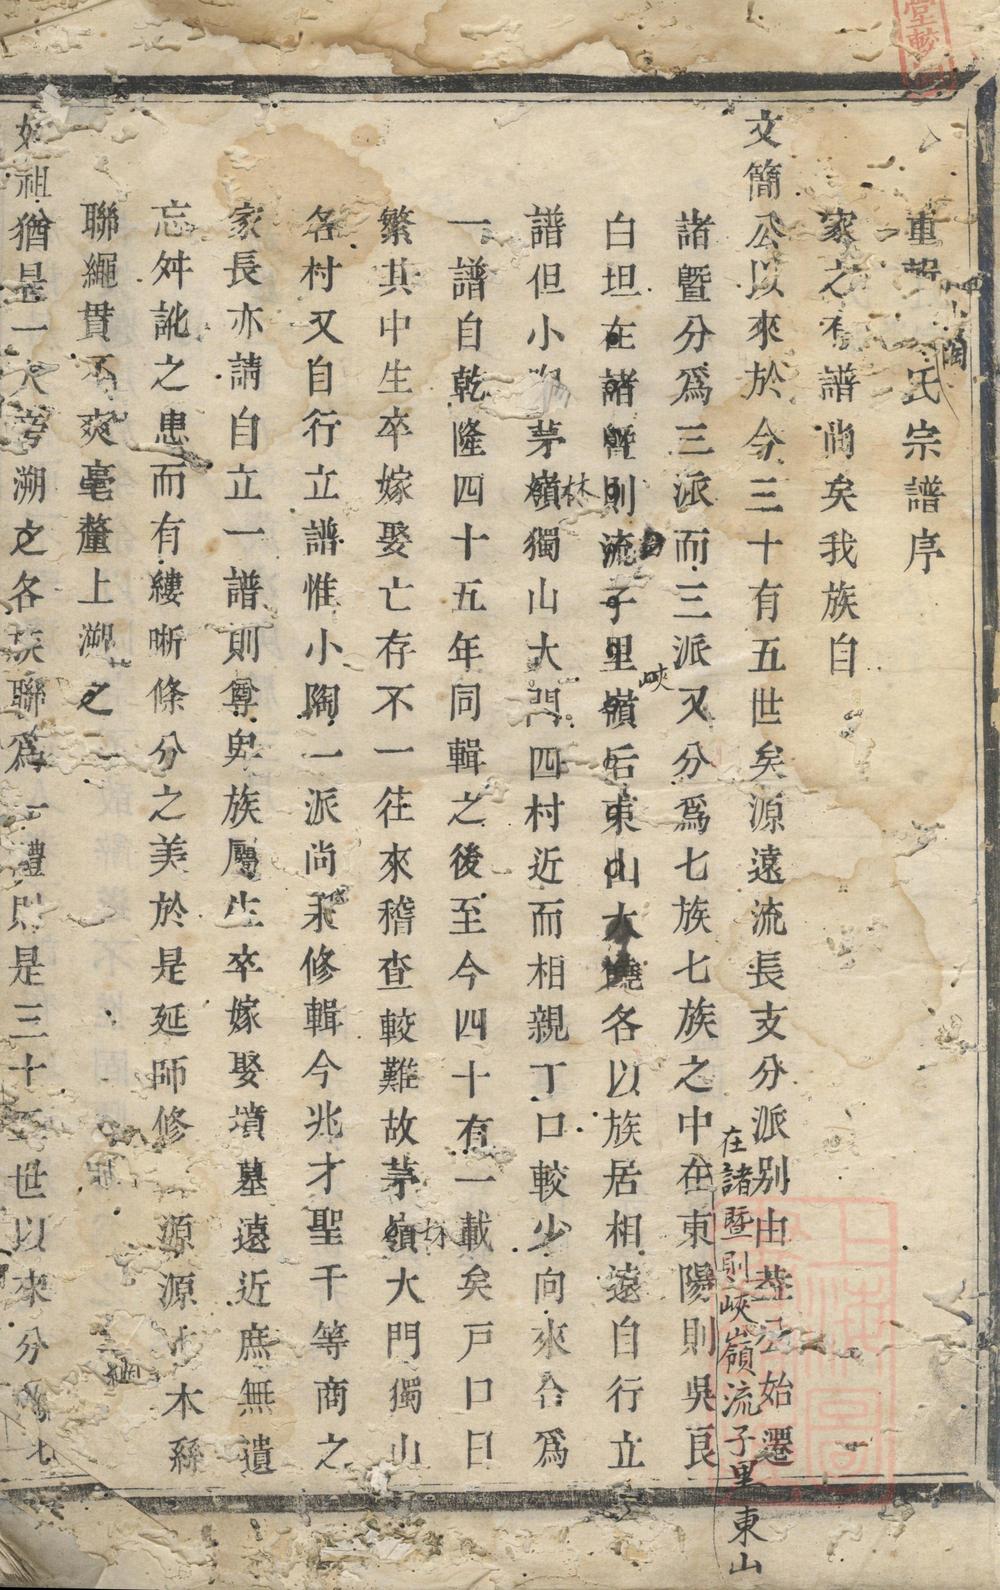 重 氏宗譜序
小陶
家之有譜尚矣我族自
文簡公以來於今三十有五世矣源遠流長支分派别由 公始遷
諸暨分爲三派而三派又分爲七族七族之中在東陽則吳良
在諸暨則峽嶺流子里東山
白坦在諸暨則流子里嶺后東山大 各以族居相遠自行立
峽
譜但小 茅嶺獨山大門四村近而相親丁口較少向來合爲
林
一譜自乾隆四十五年同輯之後至今四十有一載矣戶口日
繁其中生卒嫁娶亡存不一往來稽查較難故茅嶺大門獨山
林
各村又自行立譜惟小陶一派尚未修輯今兆才聖干等商之
家長亦請自立一譜則尊卑族屬生卒嫁娶墳墓遠近庶無遺
忘舛訛之患而有縷晰條分之美於是延師修 源源 木縣
聯繩貫不爽毫釐上溯之
始祖猶是一 溯之各族聯爲一 則是三十 世以來分 七